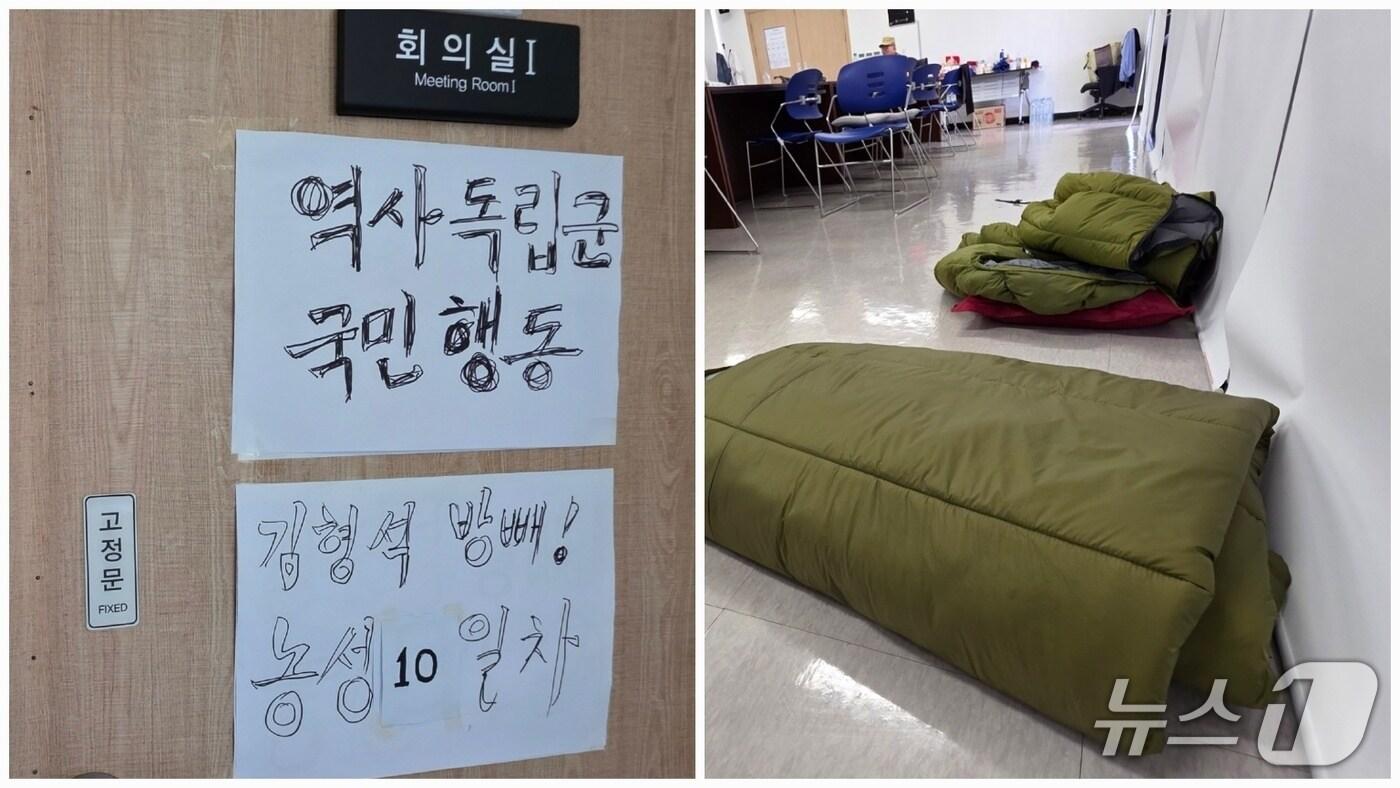 회의실 I
Meeting Room I
역사독립군
국민행동
고정문
FIXED
김형석 방빼!
농성 10 일차
뉴스1